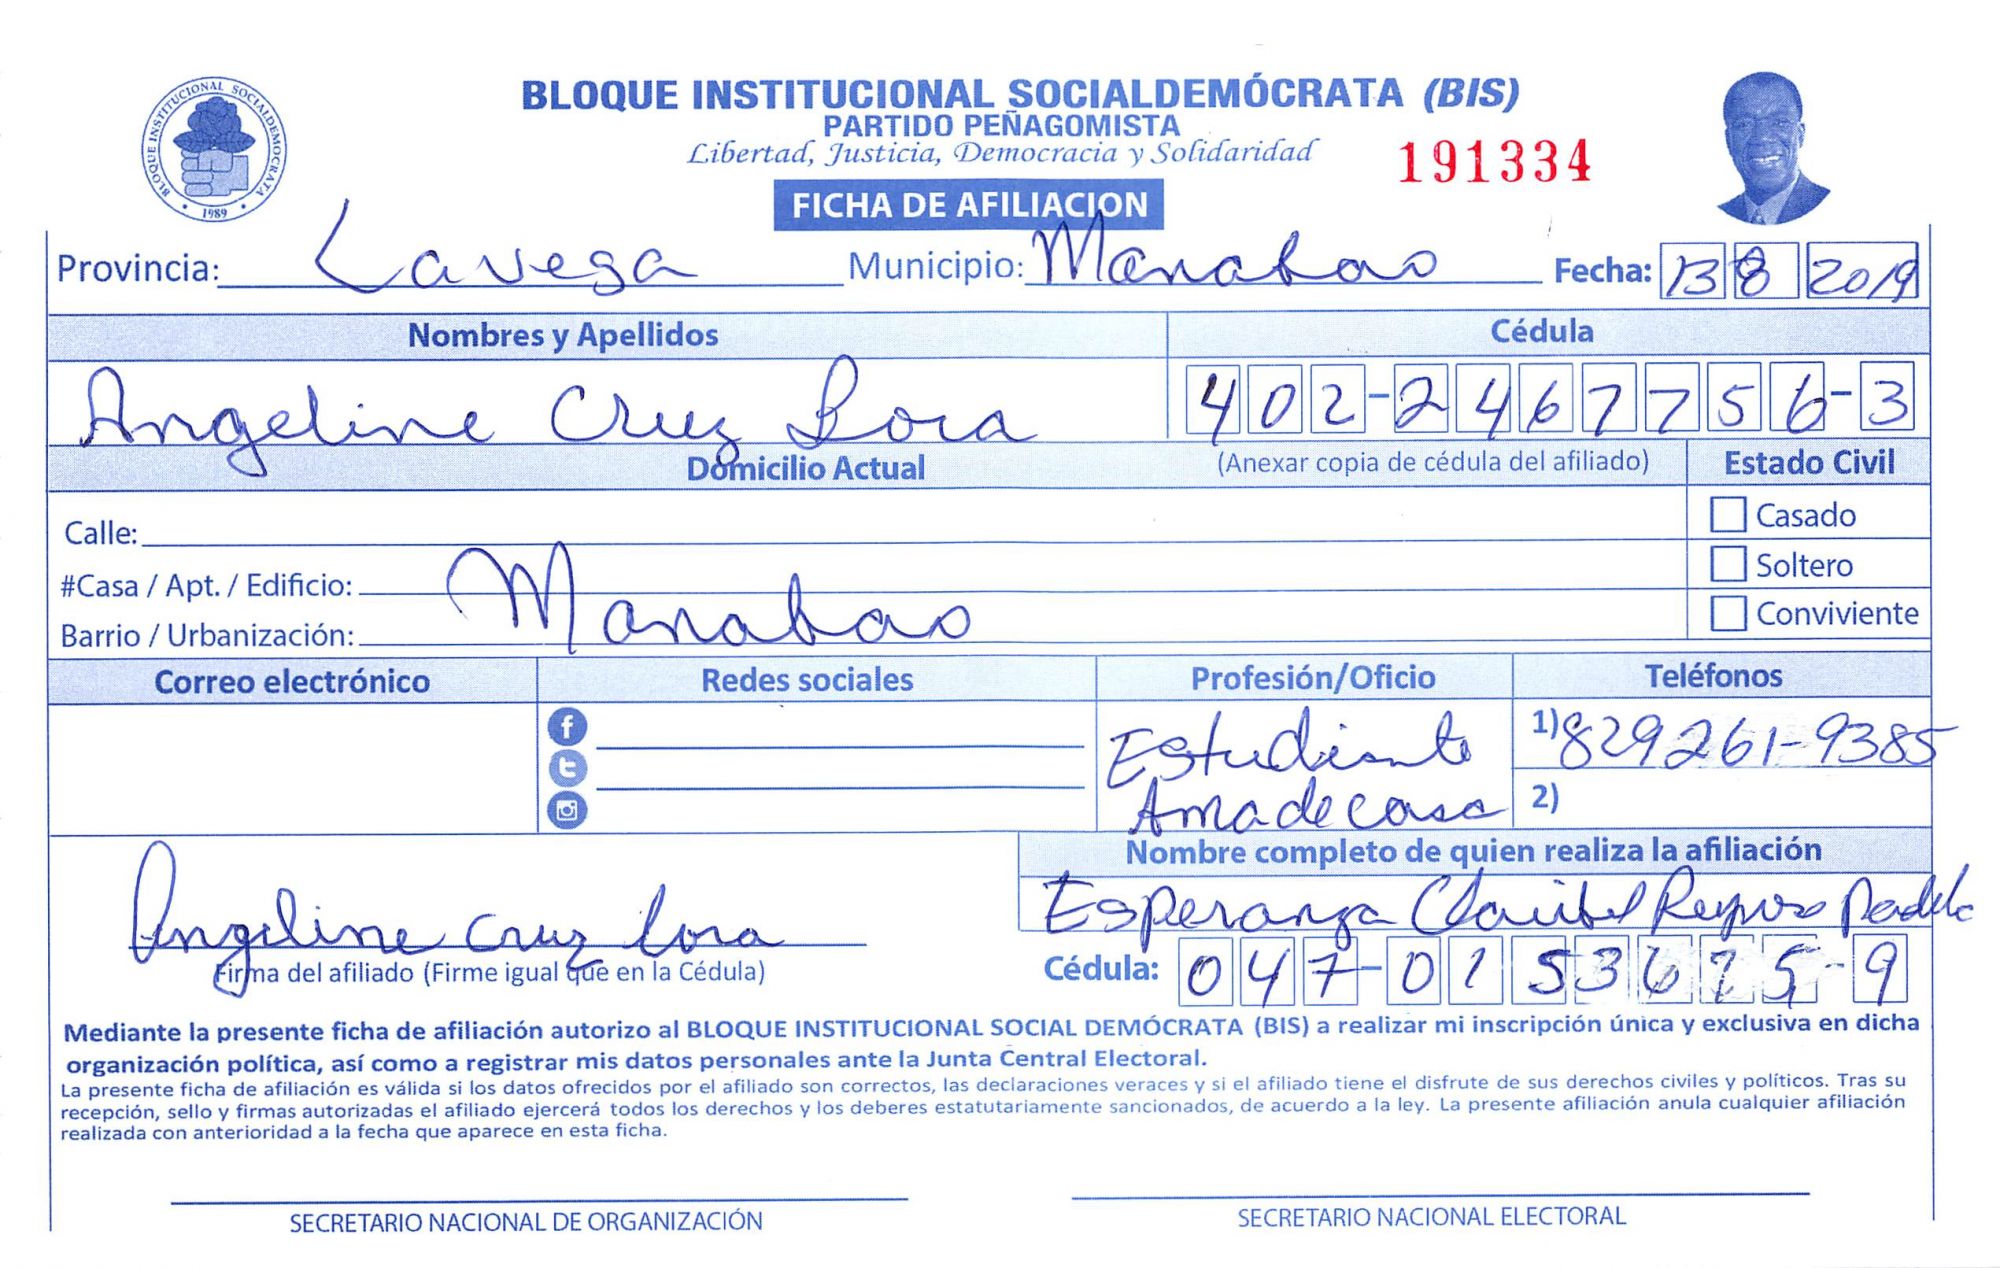 BLOQUE INSTITUCIONAL SOCIALDEMOCRATA
1989
BLOQUE INSTITUCIONAL SOCIALDEMÓCRATA (BIS)
PARTIDO PEÑAGOMISTA
Libertad, Justicia, Democracia y Solidaridad
191334
FICHA DE AFILIACION
Provincia: La vega Municipio: Manabao Fecha: 13 8 2019
Nombres y Apellidos Cédula
Angeline Cruz Lora 402-2467756-3
Domicilio Actual (Anexar copia de cédula del afiliado) Estado Civil
Calle: Casado
#Casa / Apt. / Edificio: Soltero
Barrio / Urbanización: Manabao Conviviente
Correo electrónico Redes sociales Profesión/Oficio Teléfonos
Estudiante 1) 829261-9385
Ama de casa 2)
Nombre completo de quien realiza la afiliación
Esperanza Claribel
Angeline Cruz Lora
Firma del afiliado (Firme igual que en la Cédula) Cédula: 047-01 53675-9
Mediante la presente ficha de afiliación autorizo al BLOQUE INSTITUCIONAL SOCIAL DEMÓCRATA (BIS) a realizar mi inscripción única y exclusiva en dicha
organización política, así como a registrar mis datos personales ante la Junta Central Electoral.
La presente ficha de afiliación es válida si los datos ofrecidos por el afiliado son correctos, las declaraciones veraces y si el afiliado tiene el disfrute de sus derechos civiles y políticos. Tras su
recepción, sello y firmas autorizadas el afiliado ejercerá todos los derechos y los deberes estatutariamente sancionados, de acuerdo a la ley. La presente afiliación anula cualquier afiliación
realizada con anterioridad a la fecha que aparece en esta ficha.
SECRETARIO NACIONAL DE ORGANIZACIÓN SECRETARIO NACIONAL ELECTORAL